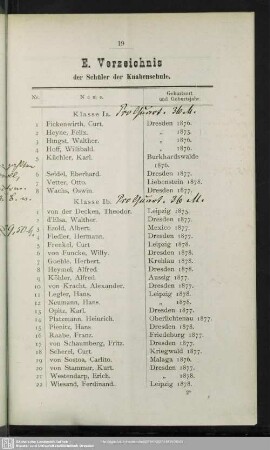 19
E. Verzeichnis
der Schüler der Knabenschule.
Nr. Name. Geburtsort und Geburtsjahr.
Klasse Ia. Pro Quart. 36 M.
1 Fichenwirth, Curt. Dresden 1876.
2 Heyne, Felix. „ 1875.
3 Hingst, Walther. „ 1876.
4 Hoff, Willibald. „ 1876.
5 Küchler, Karl. Burkhardswalde 1876.
6 Seidel, Eberhard. Dresden 1877.
7 Vetter, Otto. Liebenstein 1878.
8 Wachs, Oswin. Dresden 1877.
Klasse Ib. Pro Quart. 36 M.
1 von der Decken, Theodor. Leipzig 1875.
2 d'Elsa, Walther. Dresden 1877.
3 Albert. Mexico 1877.
4 Fiedler, Hermann. Dresden 1877.
5 Frenkel, Curt Leipzig 1878.
6 von Funcke, Willy. Dresden 1877.
7 Goehle, Herbert. 1878.
8 Heymel, Alfred. Dresden 1878.
9 Köhler, Alfred. Aussig 1877.
10 von Kracht, Alexander. Dresden 1877.
11 Legler, Hans. Leipzig 1878.
12 Neumann, Hans „ 1878.
13 Opitz, Karl. Dresden 1878.
14 Platzmann, Heinrich. Oberlichtenau 1877.
15 Plenitz, Hans Dresden 1878.
16 Franz. Friedeburg 1877.
17 von Schaumberg, Fritz. Dresden 1877.
18 Scherel, Curt. Kriegwald 1877.
19 von Sostoa, Carlito. Malaga 1876.
20 von Stammer, Kurt. Dresden 1877.
21 Westendarp, Erich. „ 1878.
22 Wiesand, Ferdinand. Leipzig 1878.